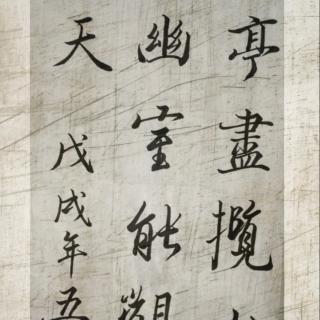 亭盡攬
幽室能觀
天
戊戌年五